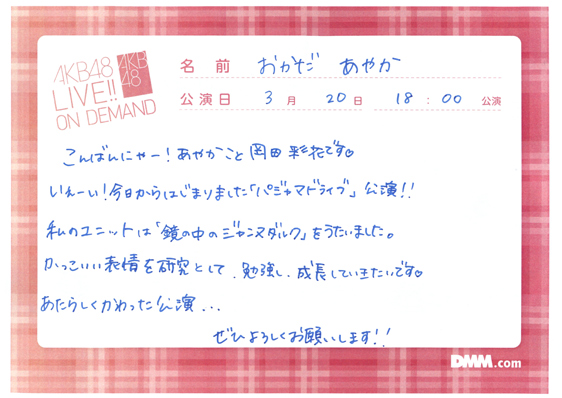 AKB48
LIVE!!
ON DEMAND
AKB
48
名前 おかだ あやか
公演日 3月 20日 18:00 公演
こんばんにゃー!あやかこと岡田彩花です♡
いえーい!今日からはじまりました「パジャマドライブ」公演!!
私のユニットは「鏡の中のジャンヌダルク」をうたいました。
かっこいい表情を研究として、勉強し、成長していきたいです♡
あたらしくかわった公演...
ぜひよろしくお願いします!!
DMM.com